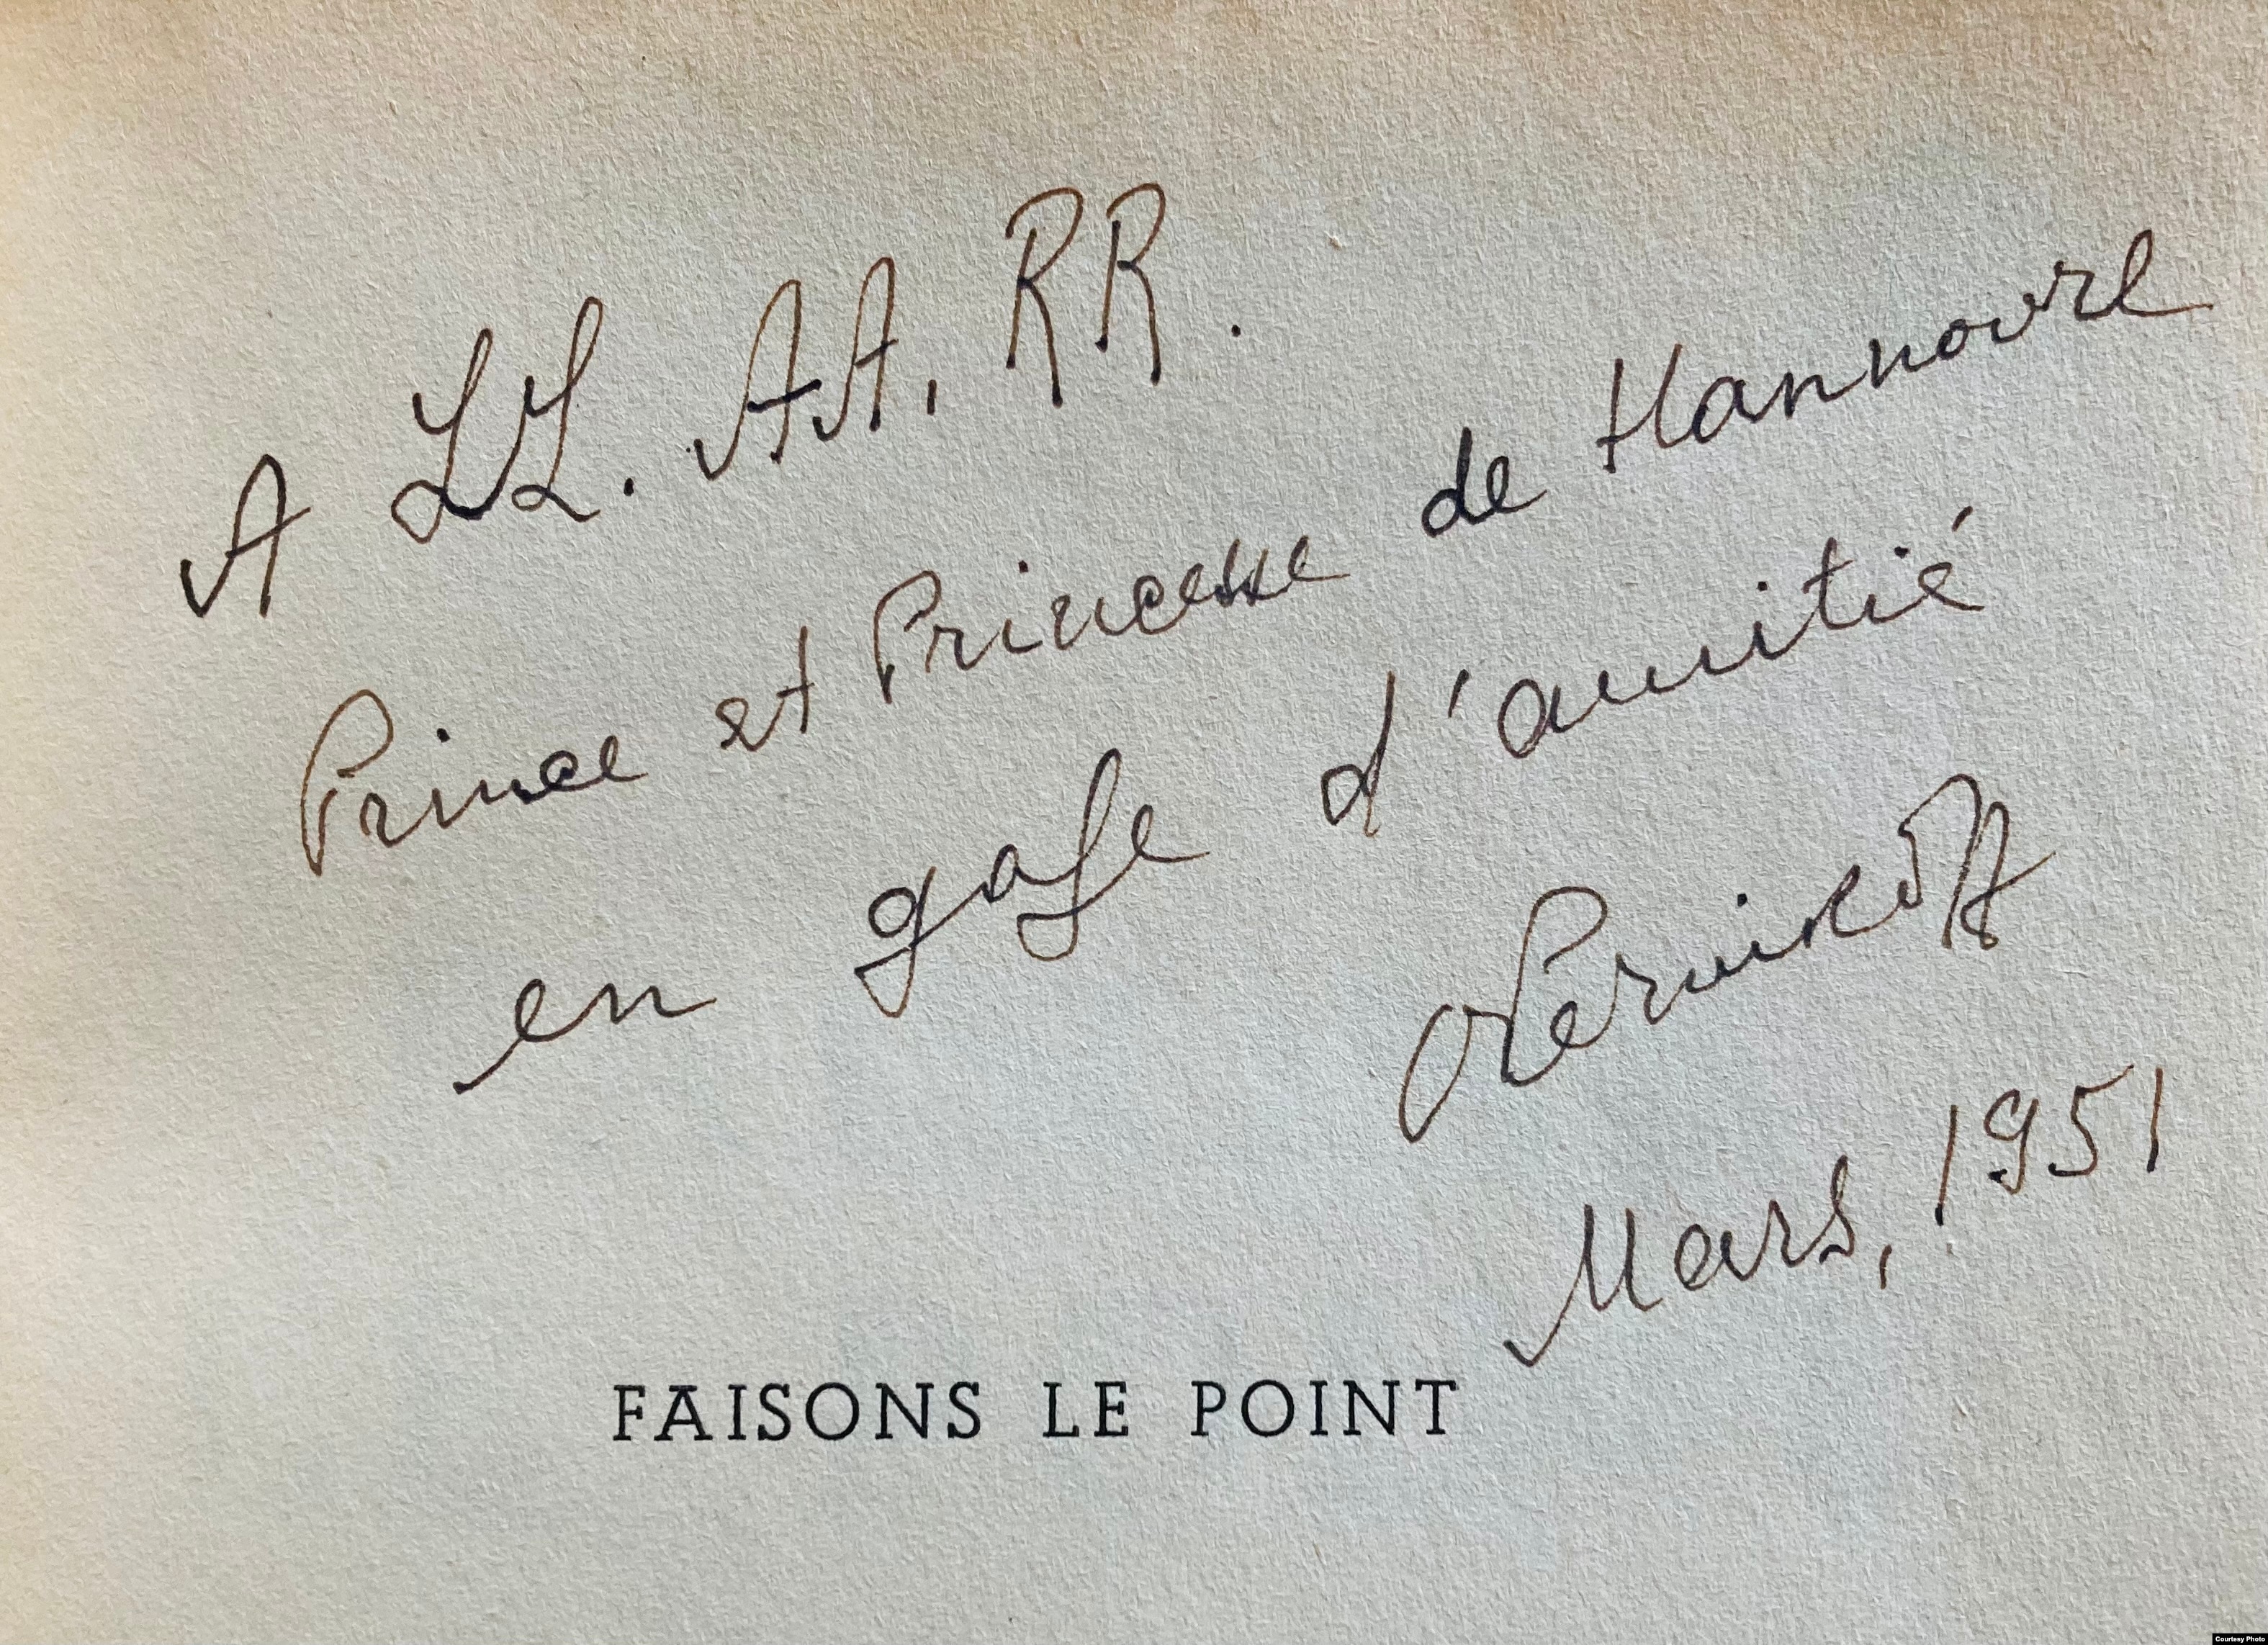 A LL. AA, RR.
Prince et Princesse de Hannovre
en gage d'amitié
Mars, 1951
FAISONS LE POINT
Courtesy Photo